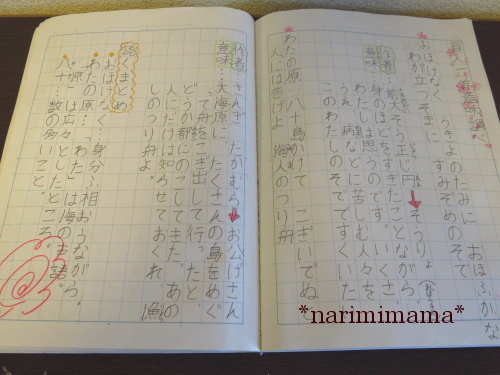 百人一首
おほけなく うきよのたみに おほふかな
わが立つそまに すみぞめのそで
作者 前大そう正じ円 そうじょう
意味
身のほどをすぎたことながら、
わたしは思うのです。いくさ、
うえ、病などに苦しむ人々を
このわたしのそでですくいた
わたの原 八十島かけて こぎいでぬと
人には告げよ 海人のつり舟
作者 さんぎ たかむら お公げさん
意味…大海原に、たくさんの島をめぐ
って舟をこぎ出して行った、と
どうか都にのこしてきた、あの
人にだけは知らせておくれ、漁
しのつり舟よ。
語くまとめ
おほけなく…身分ふ相おうながら。
わたの原…「わた」は海の古語。
「原」は広々としたところ。
八十…数の多いこと。
*narimimama*